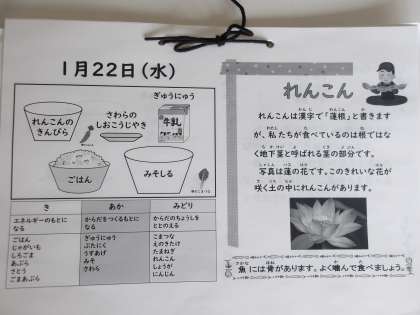 1月22日(水)
ぎゅうにゅう
れんこんの
きんぴら
さわらの
しおこうじやき
牛乳
ごはん
みそしる
き
あか
みどり
エネルギーのもとに
なる
からだをつくるもとに
なる
からだのちょうしを
ととのえる
ごはん
じゃがいも
しろごま
あぶら
さとう
ごまあぶら
ぎゅうにゅう
ぶたにく
うすあげ
みそ
さわら
こまつな
えのきたけ
たまねぎ
れんこん
しょうが
にんじん
れんこん
れんこんは漢字で「蓮根」と書きます
が、私たちが食べているのは根ではな
く地下茎と呼ばれる茎の部分です。
写真は蓮の花です。このきれいな花が
咲く土の中にれんこんがあります。
魚には骨があります。よく噛んで食べましょう。